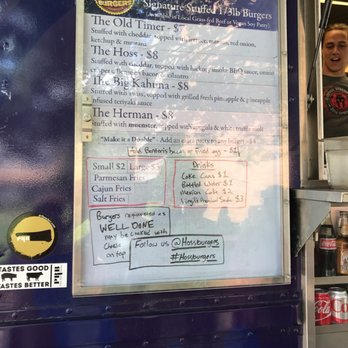 BURGERS
Signature Stuffed 1/3lb Burgers
Local Grass-fed Beef or Vegan Soy Patty
The Old Timer - $7
Stuffed with cheddar, topped with lettuce, tomato, red onion,
ketchup & mustard
The Hoss - $8
Stuffed with cheddar, topped with bacon, smoke BBQ sauce, onion
cilantro
The Big Kahuna - $8
Stuffed with swiss, topped with grilled fresh pineapple & pineapple
infused teriyaki sauce
The Herman - $8
Stuffed with muenster, topped with arugula & white truffle aioli
"Make it a Double" - Add an extra patty to any burger - $4
bacon or Fried egg - $1
Small $2 Large $3
Parmesan Fries
Cajun Fries
Salt Fries
Drinks
Coke Cans $1
Bottled Water $1
Mexican Coke $2
Virgil's Soda $3
Burgers requested as
WELL DONE
may be cooked with
Cheese
on top
Follow us @Hossburgers
#Hossburgers
TASTES GOOD
TASTES BETTER